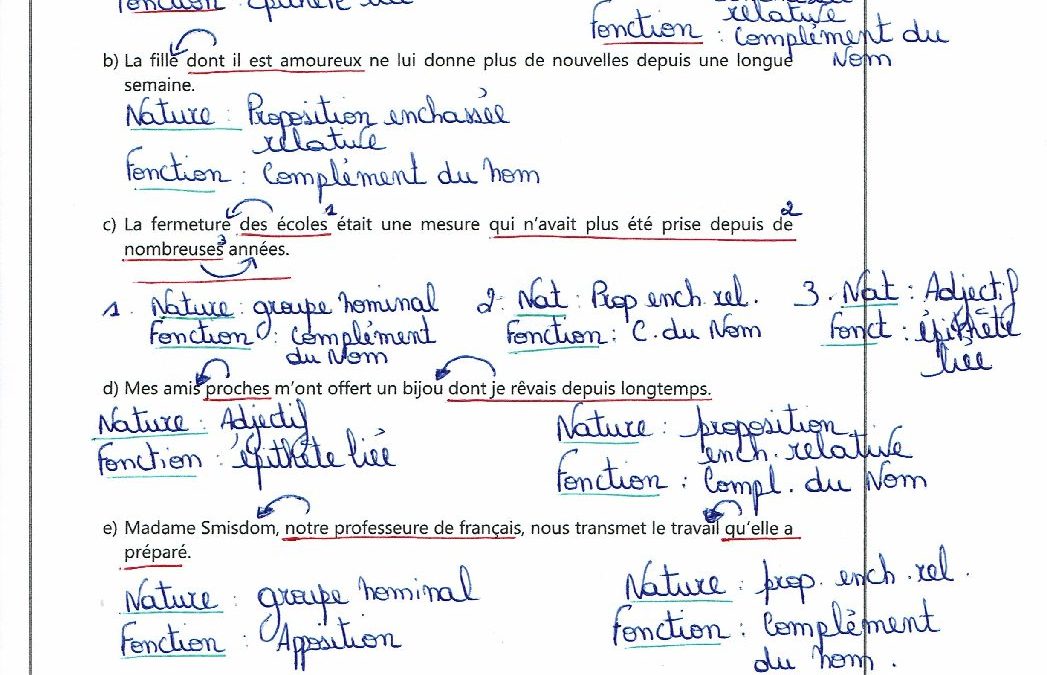 Fonction : épithète liée
relative
Fonction : Complément du
Nom
b) La fille dont il est amoureux ne lui donne plus de nouvelles depuis une longue
semaine.
Nature : Proposition enchassée
relative
Fonction : Complément du nom
1 2
c) La fermeture des écoles était une mesure qui n'avait plus été prise depuis de
3
nombreuses années.
1. Nature : groupe nominal 2. Nat : Prop ench. rel. 3. Nat : Adjectif
Fonction : complément Fonction : C. du Nom Fonct : épithète
du Nom liée
d) Mes amis proches m'ont offert un bijou dont je rêvais depuis longtemps.
Nature : Adjectif Nature : proposition
Fonction : épithète liée ench. relative
Fonction : Compl. du Nom
e) Madame Smisdom, notre professeure de français, nous transmet le travail qu'elle a
préparé.
Nature : groupe nominal Nature : prop. ench. rel.
Fonction : Apposition Fonction : Complément
du nom.